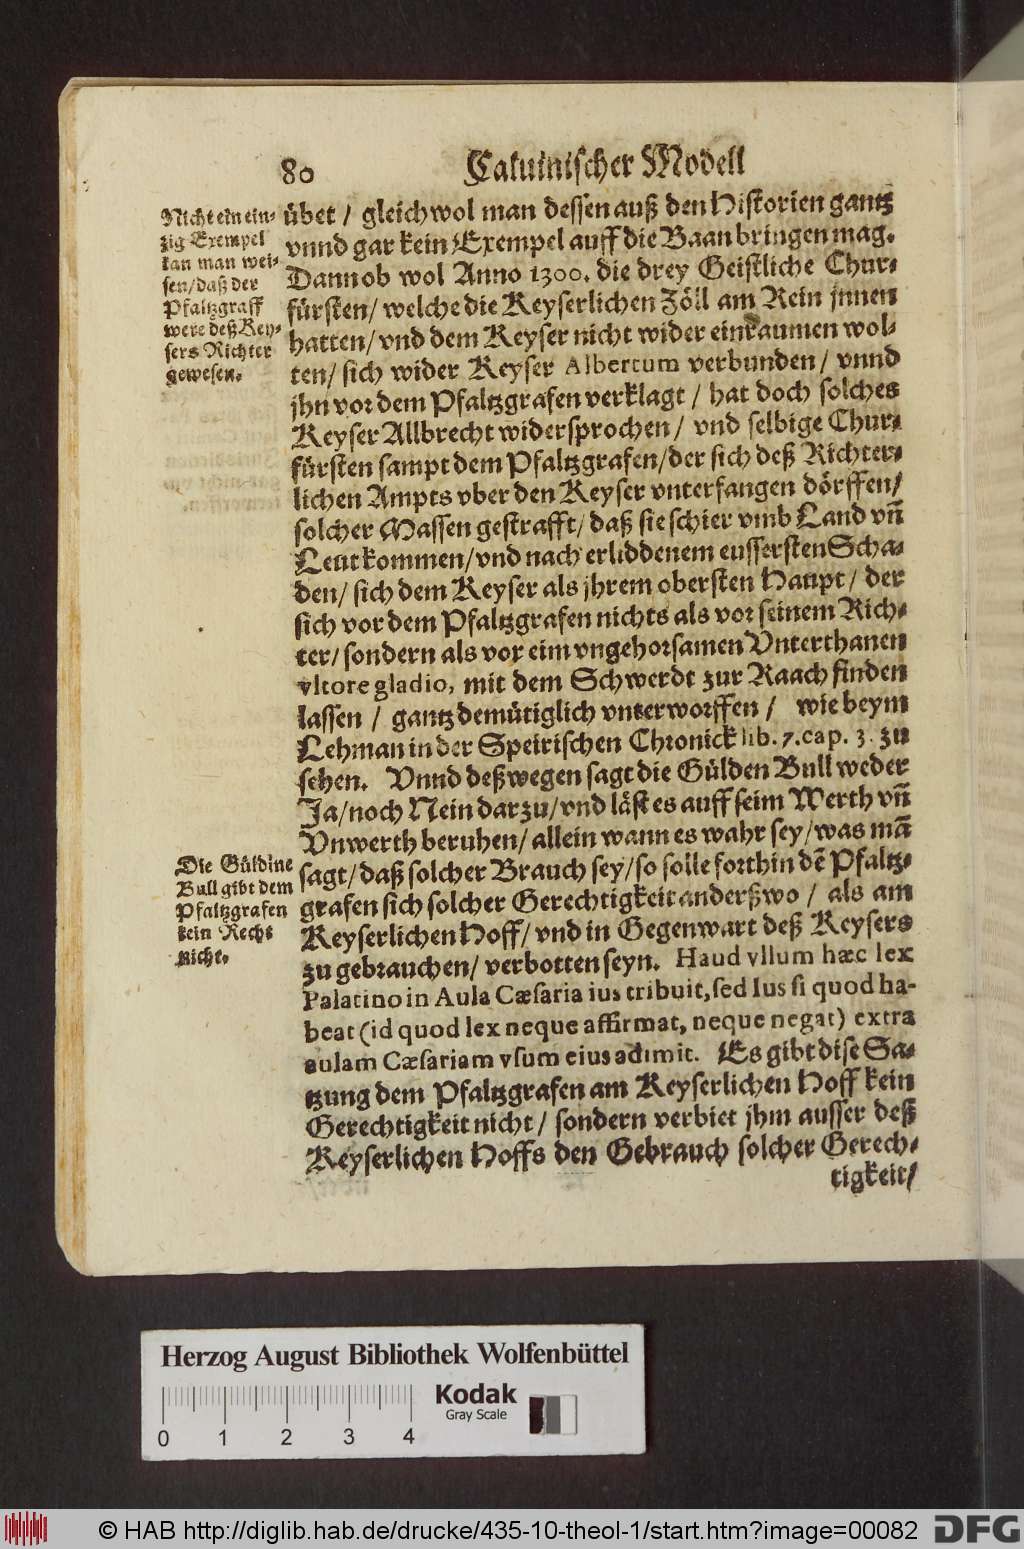 80 Caluinischer Modell
Nicht ein ein-
zig Exempel
kan man wei-
sen/ daß der
Pfaltzgraff
were deß Key-
sers Richter
gewesen.
übet / gleichwol man dessen auß den Historien gantz
vnnd gar kein Exempel auff die Baan bringen mag.
Dann ob wol Anno 1300. die drey Geistliche Chur-
fürsten/ welche die Keyserlichen Zöll am Rein jnnen
hatten/ vnd dem Keyser nicht wider einraumen wol-
ten/ sich wider Keyser Albertum verbunden/ vnnd
jhn vor dem Pfaltzgrafen verklagt / hat doch solches
Keyser Allbrecht widersprochen/ vnd selbige Chur-
fürsten sampt dem Pfaltzgrafen/ der sich deß Richter-
lichen Ampts vber den Keyser vnterfangen dörffen/
solcher Massen gestrafft/ daß sie schier vmb Land vñ
Leut kommen/ vnd nach erliddenem eussersten Scha-
den/ sich dem Keyser als jhrem obersten Haupt/ der
sich vor dem Pfaltzgrafen nichts als vor seinem Rich-
ter/ sondern als vor eim vngehorsamen Vnterthanen
vltore gladio, mit dem Schwerdt zur Raach finden
lassen / gantz demütiglich vnterworffen / wie beym
Lehman in der Speirischen Chronick lib. 7. cap. 3. zu
sehen. Vnnd deßwegen sagt die Gülden Bull weder
Ja/ noch Nein darzu/ vnd läst es auff seim Werth vñ
Vnwerth beruhen/ allein wann es wahr sey/ was mã
sagt/ daß solcher Brauch sey/ so solle forthin dẽ Pfaltz-
grafen sich solcher Gerechtigkeit anderßwo / als am
Keyserlichen Hoff/ vnd in Gegenwart deß Keysers
zu gebrauchen/ verbotten seyn. Haud vllum hæc lex
Palatino in Aula Cæsaria ius tribuit, sed Ius si quod ha-
beat (id quod lex neque affirmat, neque negat) extra
aulam Cæsariam vsum eius adimit. Es gibt dise Sa-
tzung dem Pfaltzgrafen am Keyserlichen Hoff kein
Gerechtigkeit nicht / sondern verbiet jhm ausser deß
Keyserlichen Hoffs den Gebrauch solcher Gerech-
tigkeit/
Die Güldine
Bull gibt dem
Pfaltzgrafen
kein Recht
nicht.
Herzog August Bibliothek Wolfenbüttel
Kodak
Gray Scale
0 1 2 3 4
© HAB http://diglib.hab.de/drucke/435-10-theol-1/start.htm?image=00082
DFG